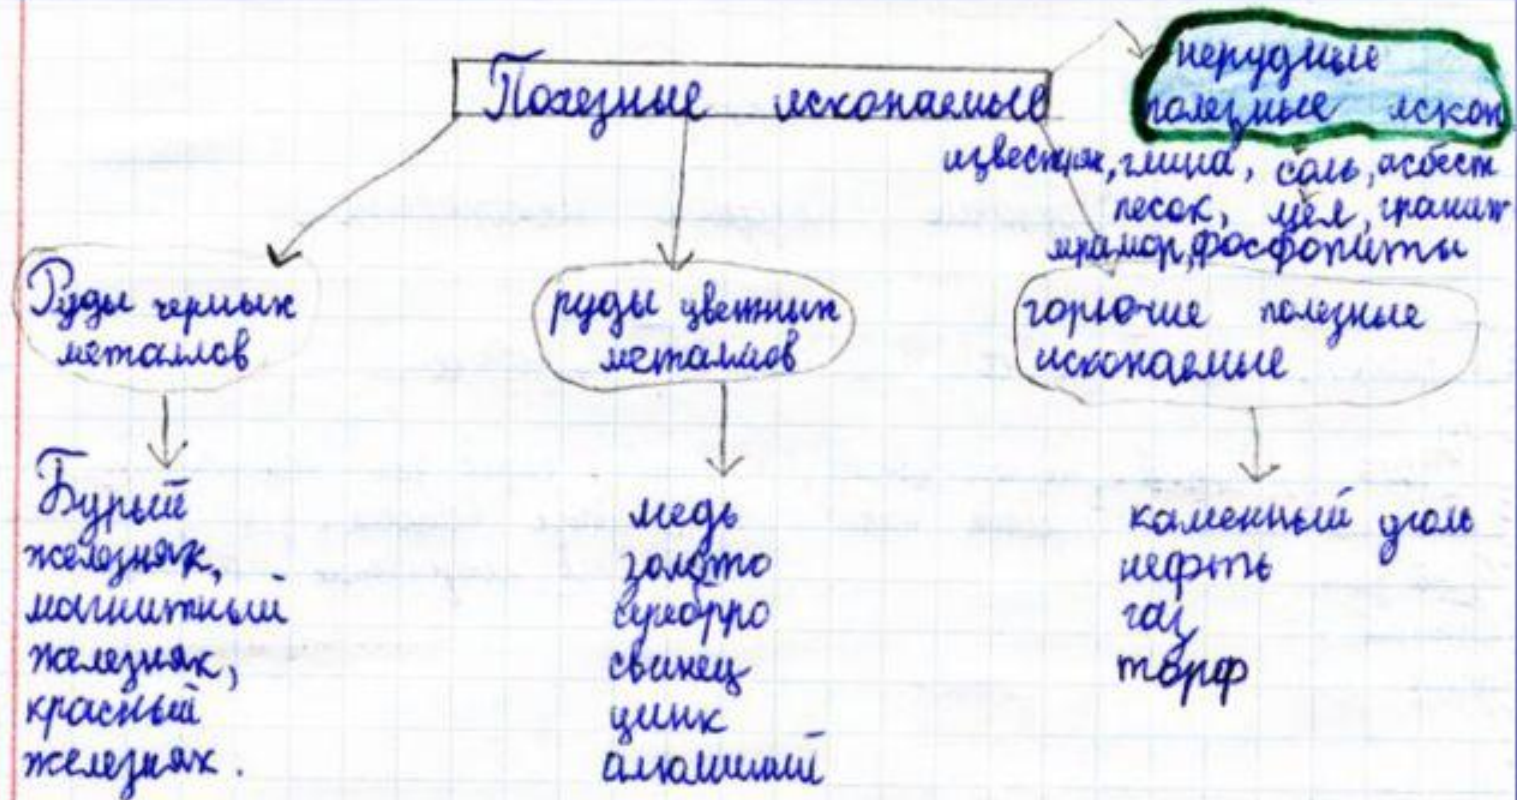 Полезные ископаемые
нерудные
полезные ископ
известняк, глина, соль, асбест
песок, мел, гранит
мрамор, фосфориты
Руды черных
металлов
руды цветных
металлов
горючие полезные
ископаемые
Бурый
железняк,
магнитный
железняк,
красный
железняк.
медь
золото
серебрро
свинец
цинк
алюминий
каменный уголь
нефть
газ
торф